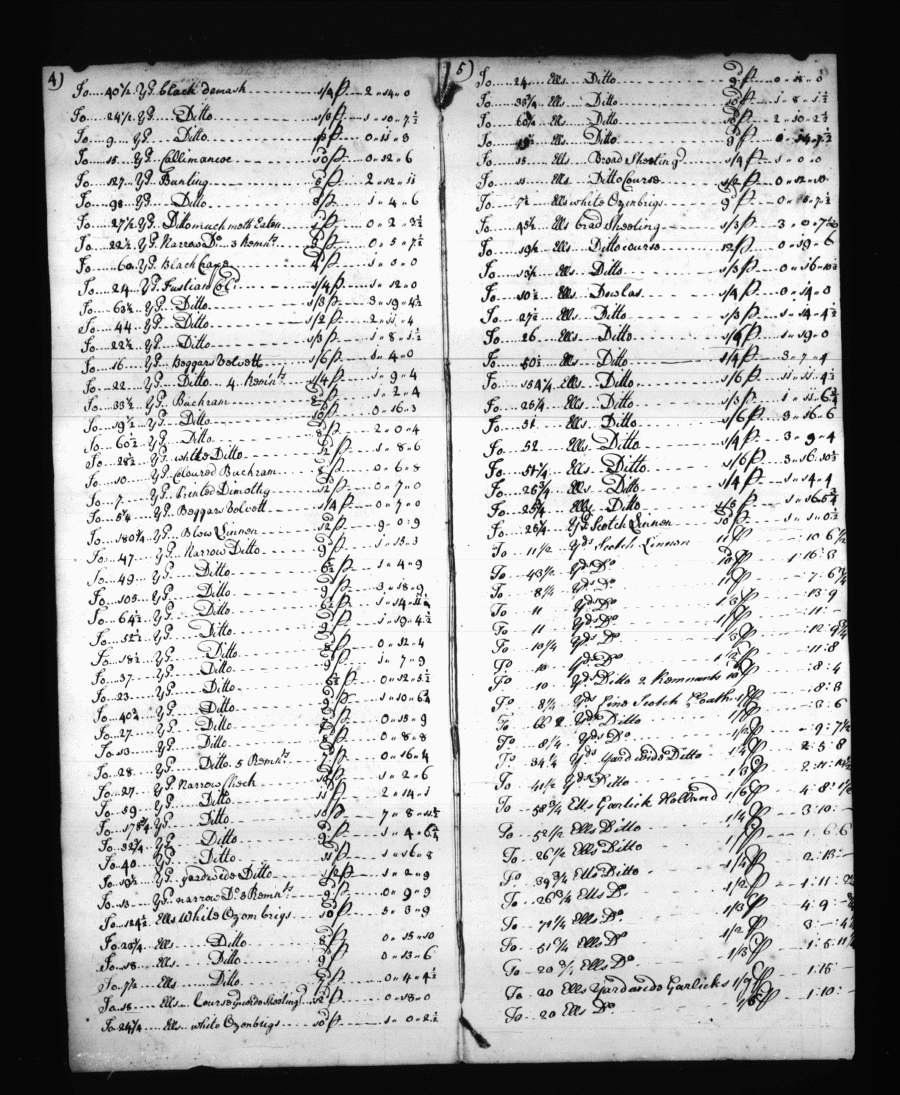 4)
To 40½ Yds black damask 1/4 p 2 „ 14 „ 0
To 24½ Yds Ditto 1/3 p 1 „ 10 „ 7½
To 9 Yds Ditto 1/3 p 0 „ 11 „ 3
To 15 Yds Callimancoe 10 p 0 „ 12 „ 6
To 127 Yds Bunting 5 p 2 „ 12 „ 11
To 98 Yds Ditto 3 p 1 „ 4 „ 6
To 27½ Yds Ditto much moth Eaten 1 p 0 „ 2 „ 3½
To 22½ Yds Narrow Do 3 Remnts 3 p 0 „ 5 „ 7½
To 60 Yds Black Crape 4 p 1 „ 0 „ 0
To 24 Yds Fustian Cold 1/4 p 1 „ 12 „ 0
To 63½ Yds Ditto 1/3 p 3 „ 19 „ 4½
To 44 Yds Ditto 1/2 p 2 „ 11 „ 4
To 22½ Yds Ditto 1/3 p 1 „ 8 „ 1½
To 16 Yds Beggars Velvett 1/6 p 1 „ 4 „ 0
To 22 Yds Ditto 4 Remnts 1/4 p 1 „ 9 „ 4
To 33½ Yds Buckram 8 p 1 „ 2 „ 4
To 19½ Yds Ditto 10 p 0 „ 16 „ 3
To 60½ Yds Ditto 8 p 2 „ 0 „ 4
To 28½ Yds white Ditto 12 p 1 „ 8 „ 6
To 10 Yds Coloured Buckram 8 p 0 „ 6 „ 8
To 7 Yds Printed Dimothy 12 p 0 „ 7 „ 0
To 5¼ Yds Beggars Velvett 1/4 p 0 „ 7 „ 0
To 180¼ Yds Blew Linnen 12 p 9 „ 0 „ 9
To 47 Yds Narrow Ditto 9 p 1 „ 15 „ 3
To 49 Yds Ditto 1 „ 4 „ 9
To 105 Yds Ditto 9 p 3 „ 18 „ 9
To 64½ Yds Ditto
To 52½ Yds Ditto 9 p 1 „ 19 „ 4½
To 18½ Yds Ditto 8 p 0 „ 12 „ 4
To 37 Yds Ditto 9 p 1 „ 7 „ 9
To 23 Yds Ditto 0 „ 12 „ 5½
To 40¾ Yds Ditto 9 p 1 „ 10 „ 6¾
To 27 Yds Ditto 7 p 0 „ 15 „ 9
To 13 Yds Ditto 8 p 0 „ 8 „ 8
To 28 Yds Ditto 5 Remnts 7 p 0 „ 16 „ 4
To 27 Yds Narrow Check 10 p 1 „ 2 „ 6
To 59 Yds Ditto 11 p 2 „ 14 „ 1
To 178¾ Yds Ditto 10 p 7 „ 8 „ 11½
To 32¾ Yds Ditto 1 „ 4 „ 6¾
To 40 Yds Ditto 11 p 1 „ 16 „ 8
To 19½ Yds yardwide Ditto 1/2 p 1 „ 2 „ 9
To 13 Yds narrow Do 3 Remnts 9 p 0 „ 9 „ 9
To 124½ Ells White Ozenbrigs 10 p 5 „ 3 „ 9
To 23¾ Ells Ditto 8 p 0 „ 15 „ 10
To 18 Ells Ditto 9 p 0 „ 13 „ 6
To 7½ Ells Ditto 7 p 0 „ 4 „ 4½
To 18 Ells Course wide Sheeting 12 p 0 „ 18 „ 0
To 24¼ Ells white Ozenbrigs 10 p 1 „ 0 „ 2½
5)
To 24 Ells Ditto 9 p 0 „ 18 „ 0
To 33¾ Ells Ditto 10 p 1 „ 8 „ 1½
To 60¼ Ells Ditto 10 p 2 „ 10 „ 2½
To 19½ Ells Ditto 9 p 0 „ 14 „ 7½
To 15 Ells Broad Sheeting 1/4 p 1 „ 0 „ 0
To 11 Ells Ditto Course 1/2 p 0 „ 12 „ 10
To 7½ Ells white Ozenbrigs 9 p 0 „ 5 „ 7½
To Ells brad Sheeting 1/3 p 3 „ 0 „ 7½
To 19½ Ells Ditto course 12 p 0 „ 19 „ 6
To 13½ Ells Ditto 1/3 p 0 „ 16 „ 10½
To 10½ Ells Dowlas 1/4 p 0 „ 14 „ 0
To 27½ Ells Ditto 1/3 p 1 „ 14 „ 4½
To 26 Ells Ditto 1/6 p 1 „ 19 „ 0
To 50½ Ells Ditto 1/4 p 3 „ 7 „ 4
To 154¼ Ells Ditto 1/6 p 11 „ 11 „ 4½
To 25¼ Ells Ditto 1/3 p 1 „ 11 „ 6¾
To 51 Ells Ditto 1/6 p 3 „ 16 „ 6
To 52 Ells Ditto 1/4 p 3 „ 9 „ 4
To 51¼ Ells Ditto 1/6 p 3 „ 16 „ 10½
To 25¾ Ells Ditto 1/4 p 1 „ 14 „ 4
To Ells Ditto 1/5 p
To 25¼ Yds Scotch Linnen 10 p 1 „ 1 „ 0½
To 11½ Yds Scotch Linnen 11 p 10 : 6½
To 43½ Yds Do 10 p 1 : 16 : 3
To 8¼ Yds Do 11 p : 7 : 6¾
To 11 Yds Do 1/3 p : 13 : 9
To 11 Yds Do 1/ p : 11 : -
To 10¼ Yds Do 1/3 p : 12 : 9¾
To 10 Yds Do 1/2 p : 11 : 8
To 10 Yds Ditto 2 Remnants 10 p : 8 : 4
To 8¼ Yds fine Scotch Cloath 1/ p : 8 : 3
To Yds Ditto : 3 : 6
To 8¼ Yds Do 1/2 p : 9 : 7½
To 34¼ Yds Yardwide Ditto 1/4 p 2 : 5 : 8
To 41½ Yds Ditto 1/3 p 2 : 11 : 10½
To 58¾ Ells Garlick Holland 1/6 p 4 : 8 : 1½
To 52½ Ells Ditto 1/4 p 3 : 10 : -
To 26½ Ells Ditto 1/ p 1 : 6 : 6
To 39¾ Ells Ditto 1/4 p 2 : 13 : -
To 26¾ Ells Do 1/2 p 1 : 11 :
To 71¼ Ells Do 1/3 p 4 : 9 :
To 51¾ Ells Do 1/2 p 3 : -
To 20¾ Ells Do 1/3 p 1 : 5 : 11¼
To 20 Ells Yardwide Garlicks 1/9 p 1 : 15 -
To 20 Ells Do 1/6 p 1 : 10 : -